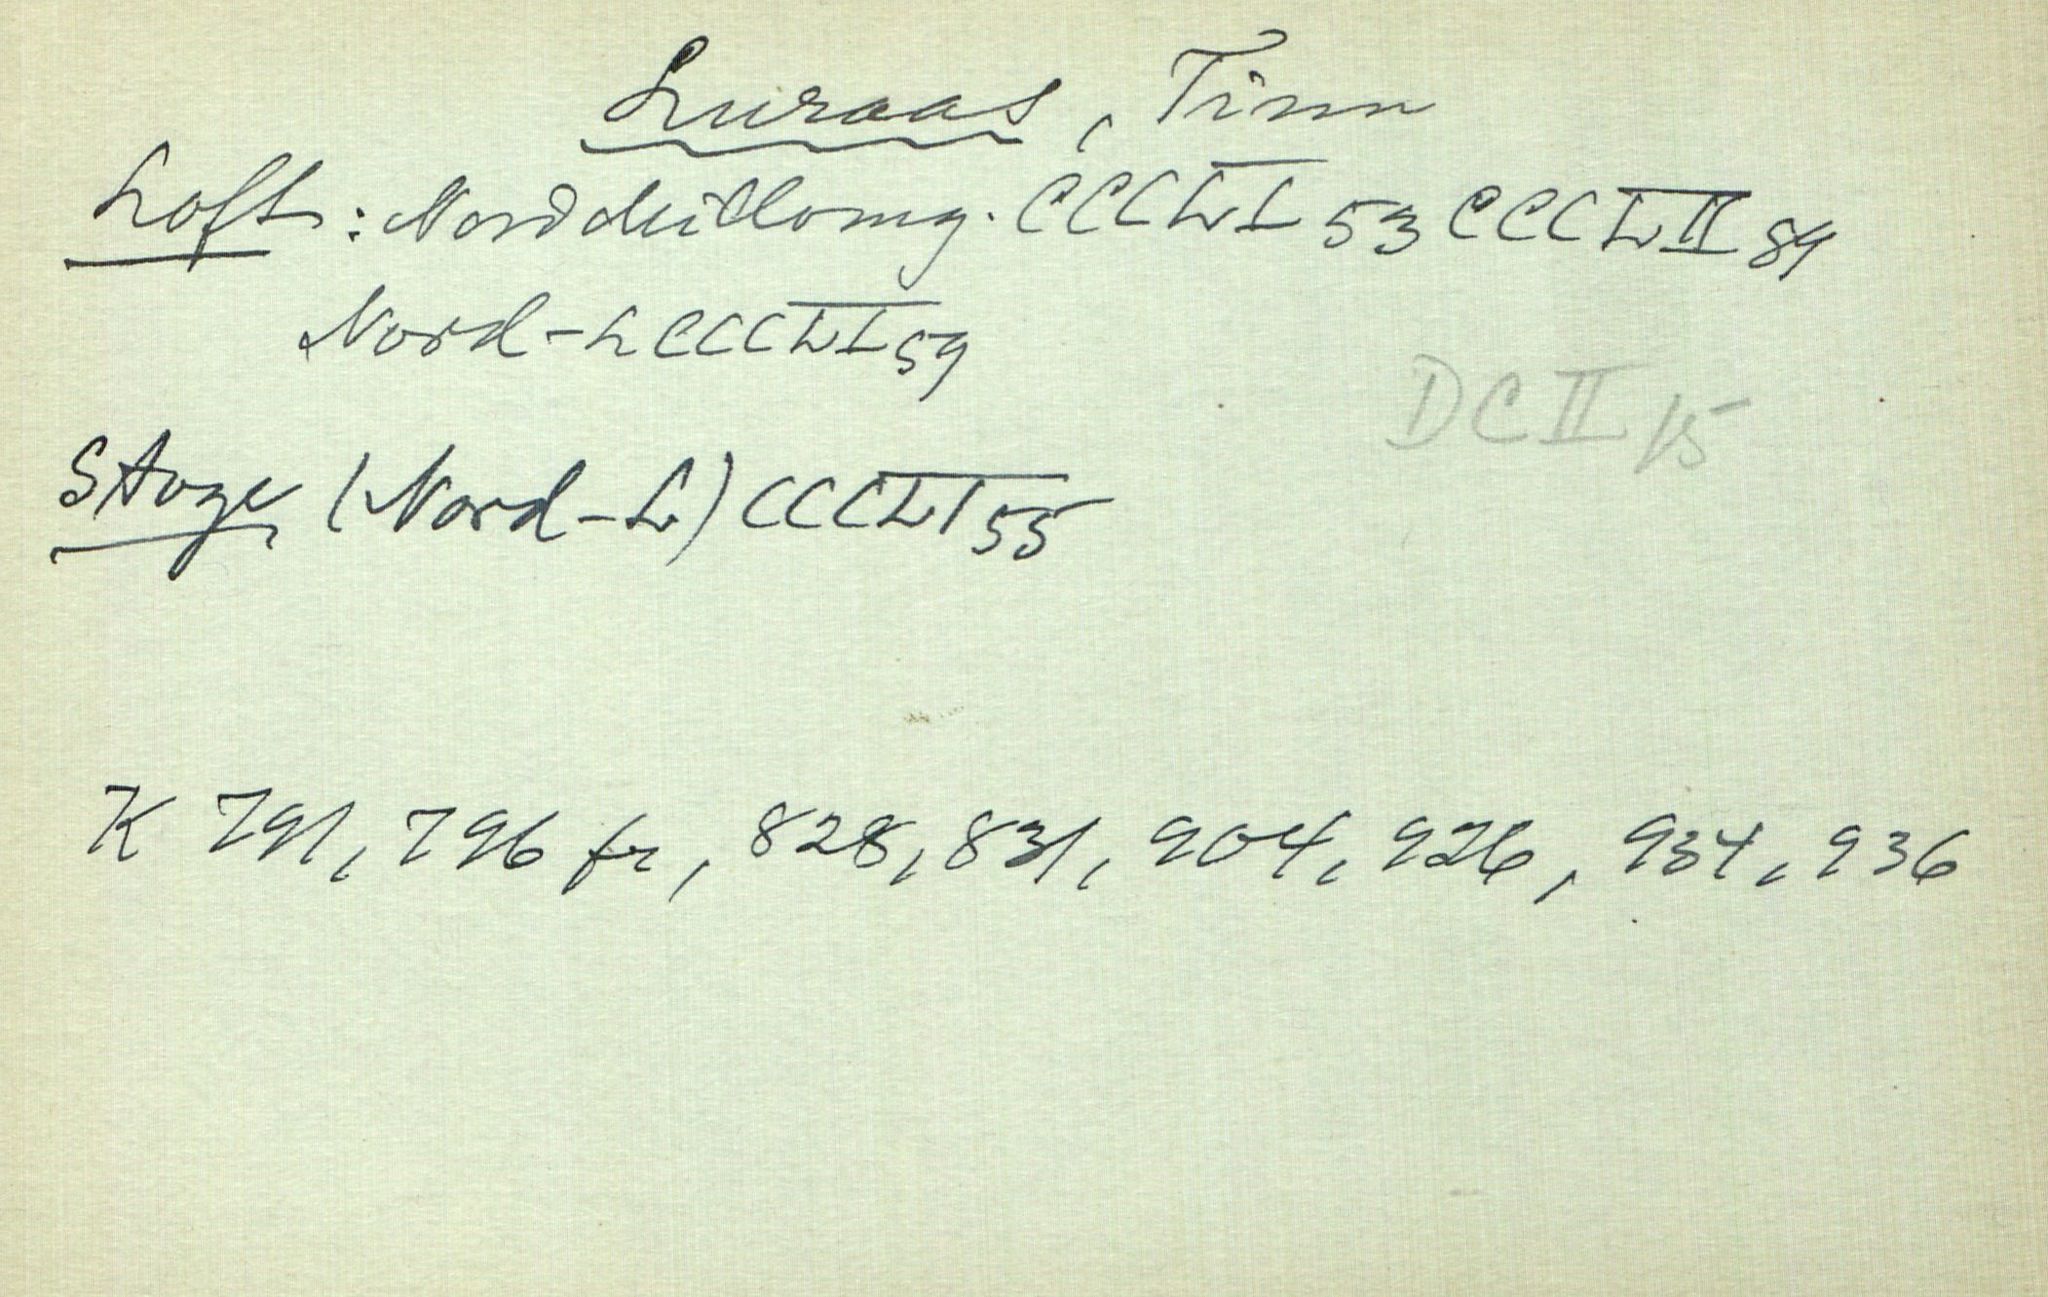 Luraas, Tinn
Loft: CCCLI 53 CCCLII 84
Nord-L CCCLI 59
DCII 15
Stoge (Nord-L) CCCLI 55
K 791, 796 fr, 828, 831, 904, 926, 934, 936